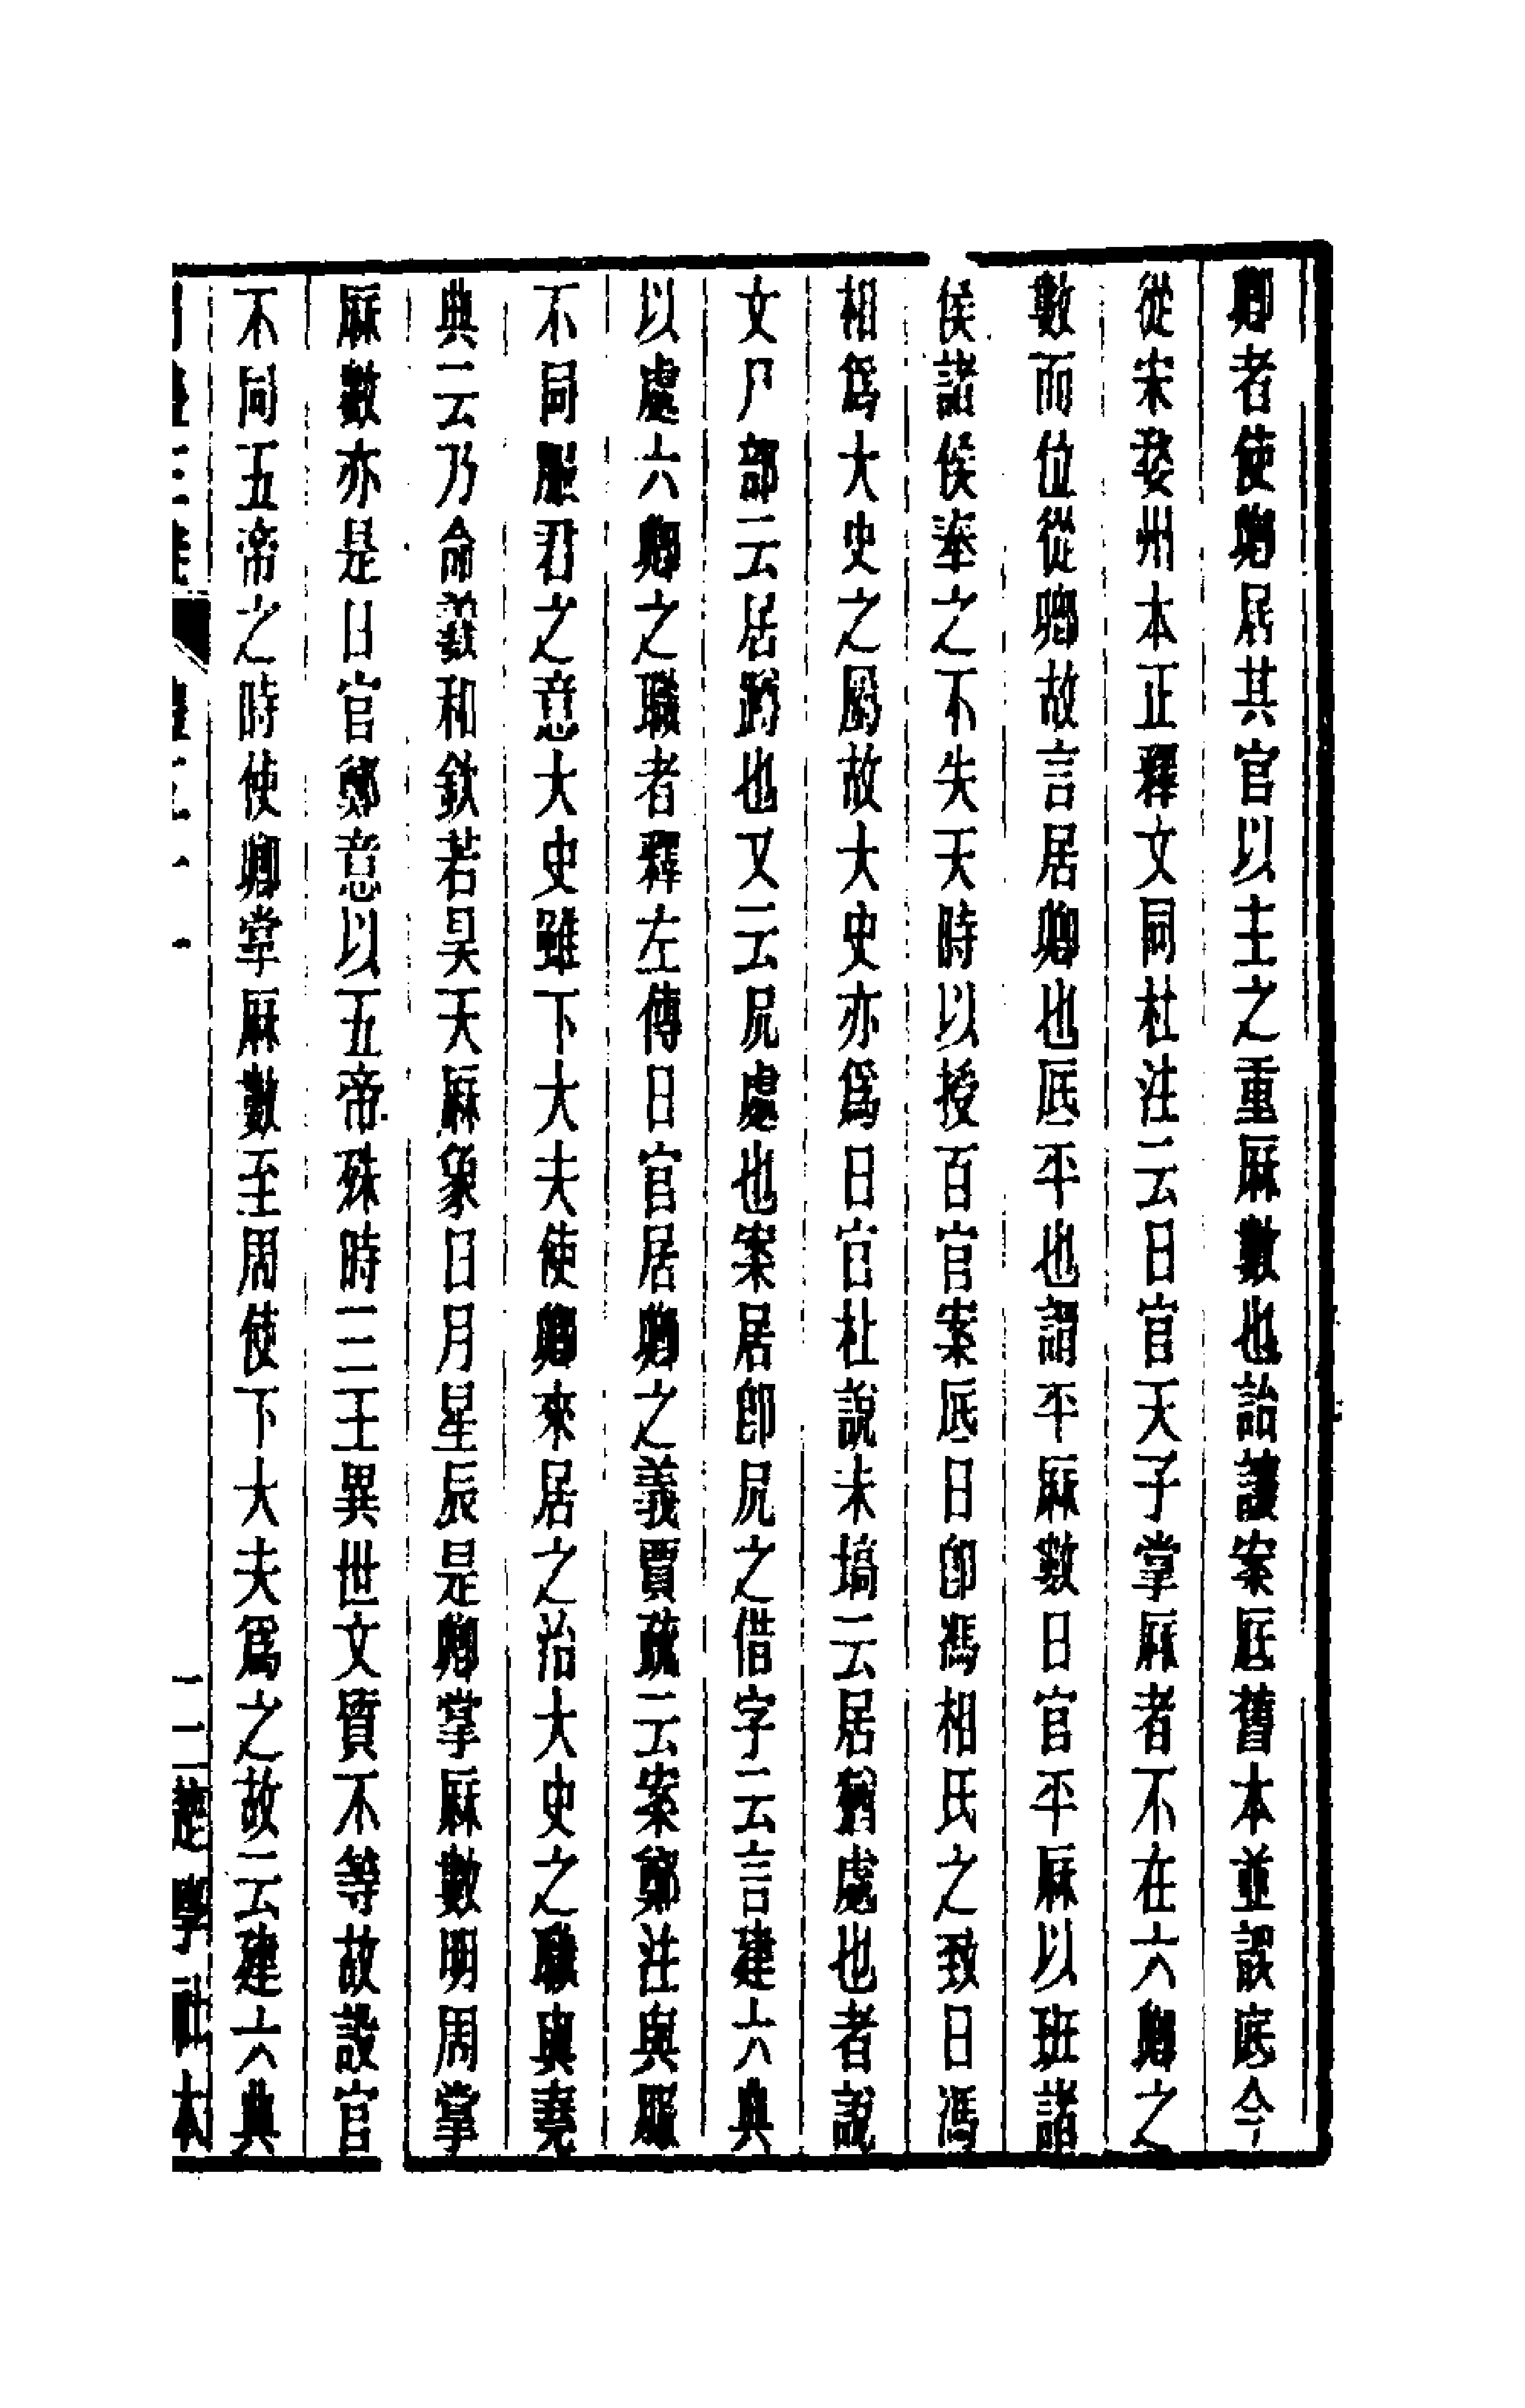 卿者使卿居其官以主之重厤數也詒讓案厎舊本並誤底今
從宋婺州本正釋文同杜注云日官天子掌厤者不在六卿之
數而位從卿故言居卿也厎平也謂平厤數日官平厤以班諸
侯諸侯奉之不失天時以授百官案厎日卽馮相氏之致日馮
相爲大史之屬故大史亦爲日官杜說未塙云居猶處也者說
文尸部云居蹲也又云凥處也案居卽凥之借字云言建六典
以處六卿之職者釋左傳日官居卿之義賈疏云案鄭注與服
不同服君之意大史雖下大夫使卿來居之治大史之職與堯
典云乃命羲和欽若昊天厤象日月星辰是卿掌厤數明周掌
厤數亦是日官鄭意以五帝殊時三王異世文質不等故設官
不同五帝之時使卿掌厤數至周使下大夫爲之故云建六典
楚學社本